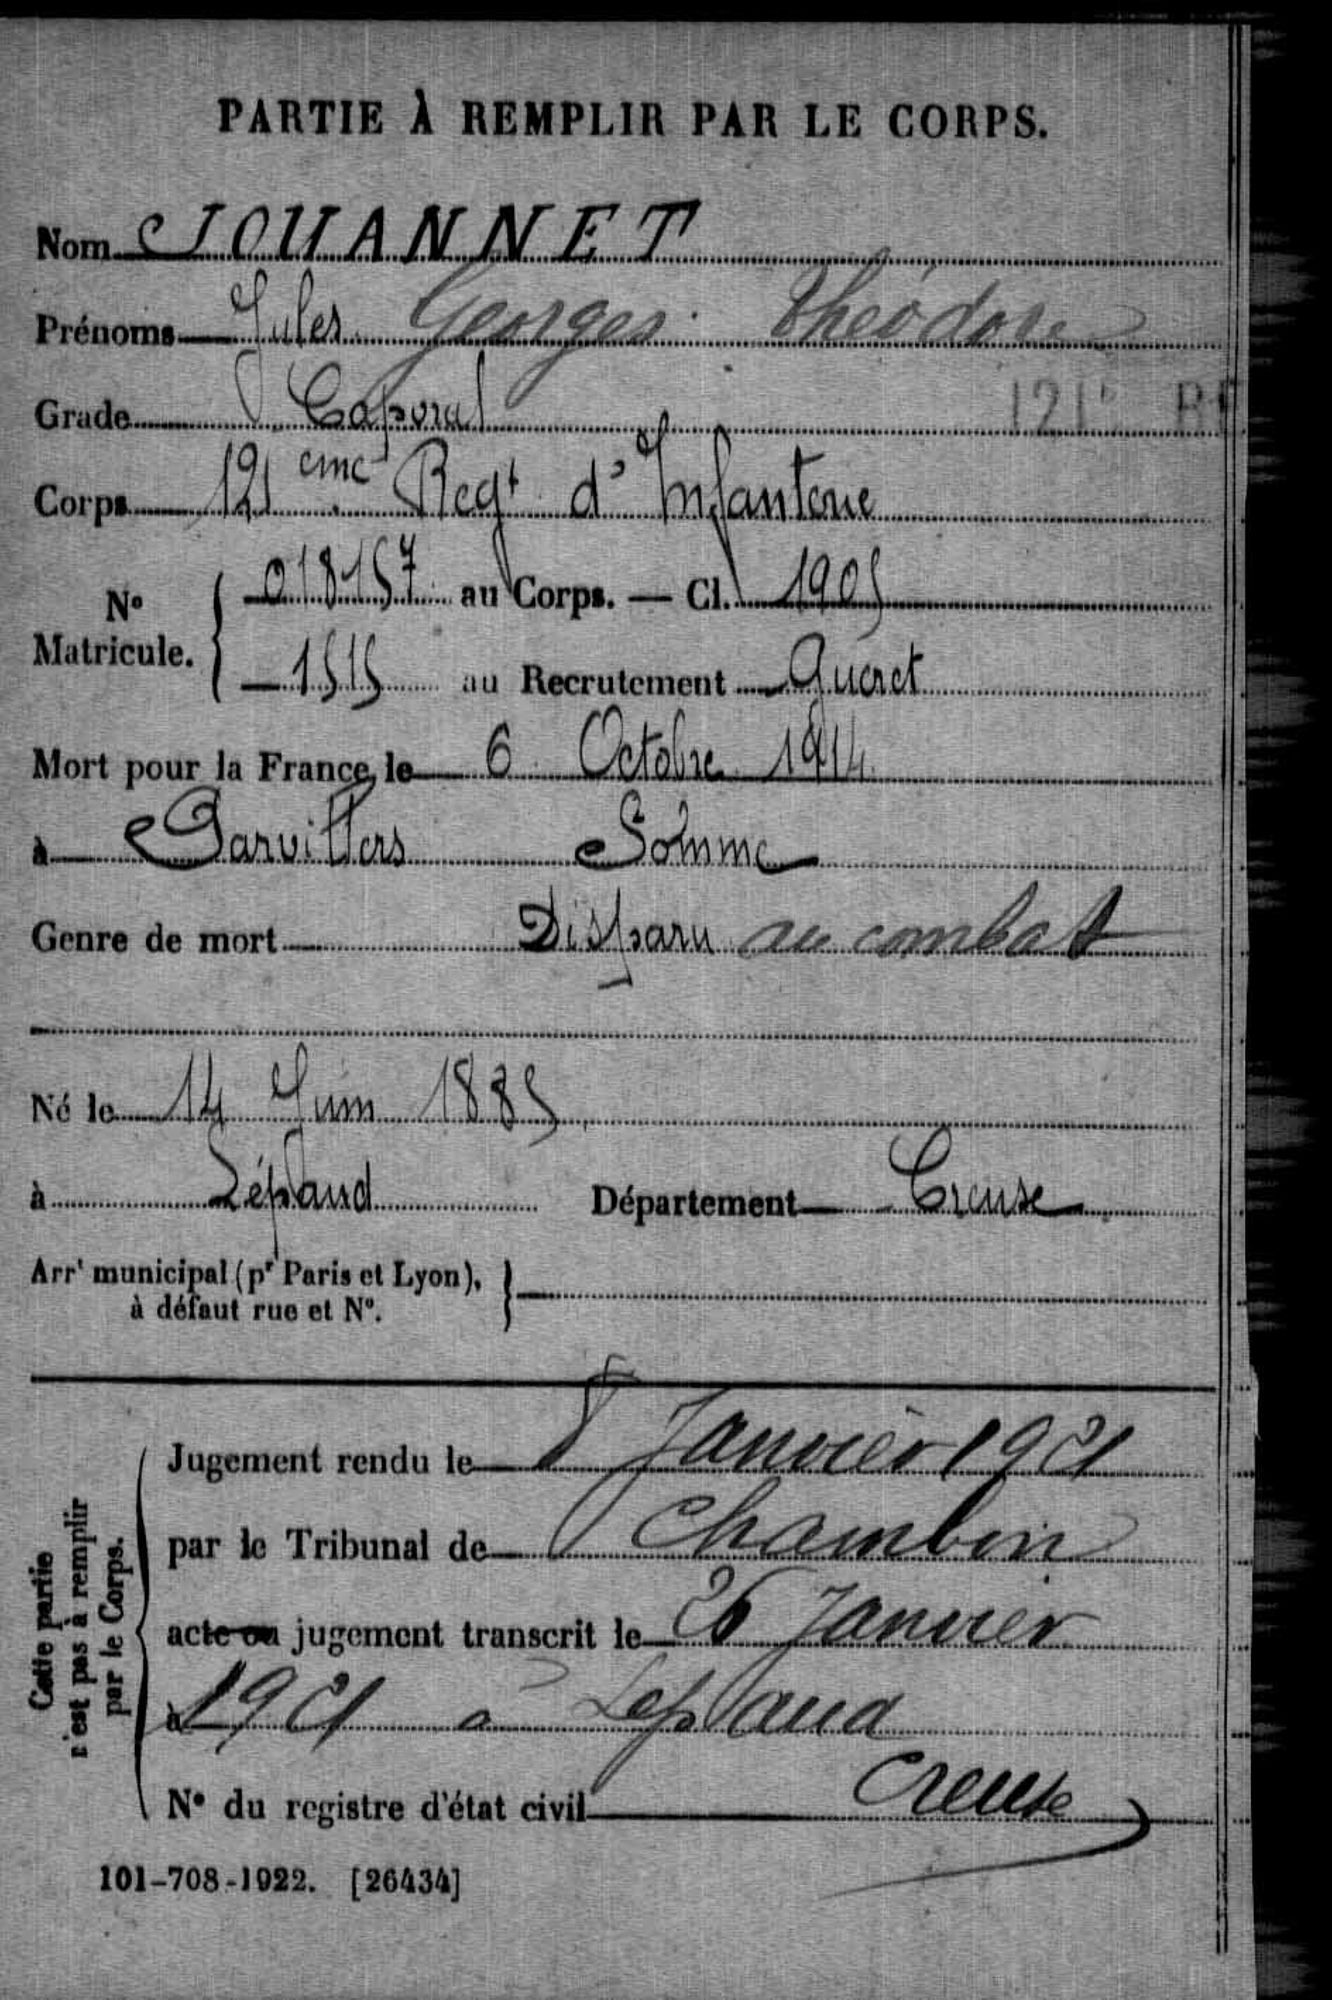 PARTIE À REMPLIR PAR LE CORPS.
Nom JOUANNET
Prénoms Jules Georges Théodore
Grade Caporal
121e
Corps 121 eme Regt d'Infanterie
No Matricule. { 018157 au Corps. — Cl. 1905
1515 au Recrutement Guéret
Mort pour la France, le 6 Octobre 1914
à Parvillers Somme
Genre de mort Disparu au combat
Né le 14 Juin 1885
à Lépaud Département Creuse
Arrt municipal (pr Paris et Lyon),
à défaut rue et No.
Cette partie
n'est pas à remplir
par le Corps.
Jugement rendu le 8 Janvier 1921
par le Tribunal de Chambon
acte ou jugement transcrit le 26 Janvier
à 1921 à Lepaud
Creuse
No du registre d'état civil
101-708-1922. [26434]